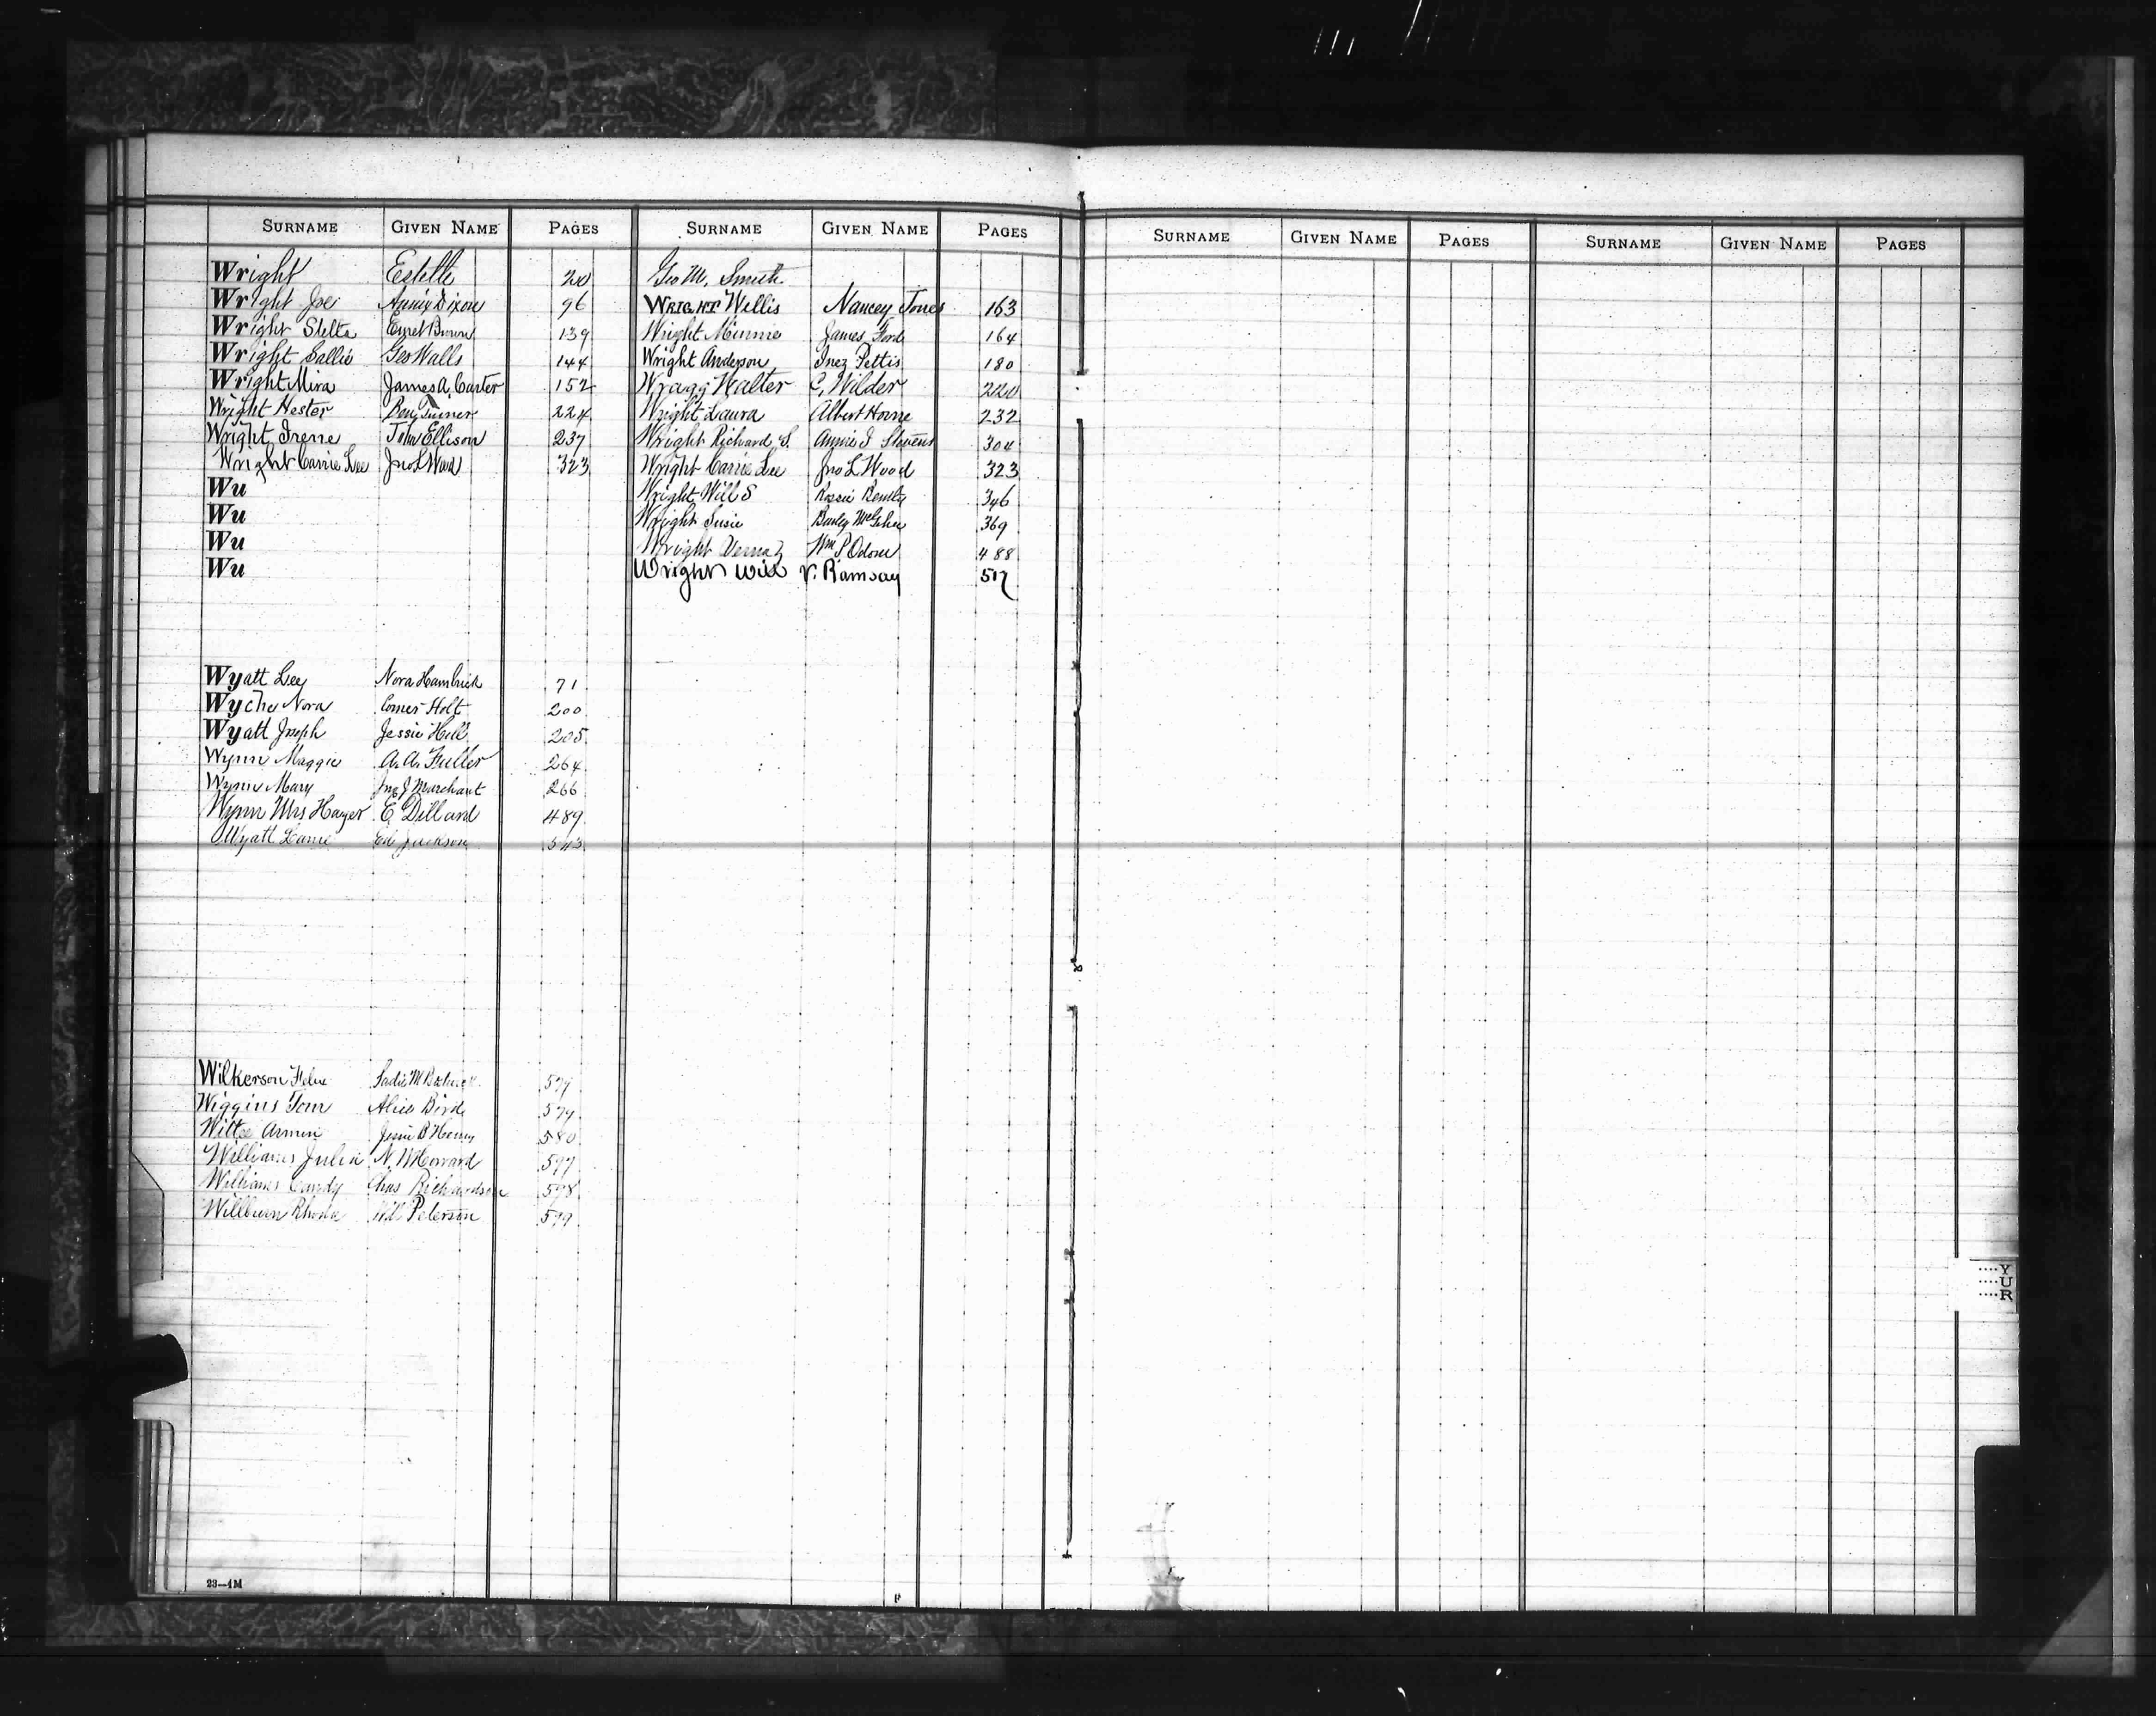 SURNAME GIVEN NAME PAGES SURNAME GIVEN NAME PAGES SURNAME GIVEN NAME PAGES SURNAME GIVEN NAME PAGES
Wright Estelle 20 Geo M. Smith
Wright Joe Annie Dixon 96 WRIGHT Willis Nancey Jones 163
Wright Stella Brown 139 Wright Minnie James Ford 164
Wright Sallie Geo Walls 144 Wright Anderson Inez Pettis 180
Wright Mira James A. Carter 152 Wragg Walter C. Wilder 220
Wright Hester Ben Turner 224 Wright Laura Albert Horne 232
Wright Irene John Ellison 237 Wright Richard S. Annie I Stevens 304
Wright Carrie Lee Jno L Wood 323 Wright Carrie Lee Jno L Wood 323
Wu Wright Will S 346
Wu Wright Susie McGehee 369
Wu Wright Wm P Odom 488
Wu Wright Will V. Ramsay 517
Wyatt Lee Nora Hambrick 71
Wyche Nora Comer Holt 200
Wyatt Joseph Jessie Hill 205
Wynn Maggie A. A. Fuller 264
Wynn Mary Jno J Marchant 266
Wynn Mrs E. Dillard 489
Wyatt Ed Jackson 543
Wilkerson Sadie M
Wiggins Tom Alice Bird 579
Armin Jessie B 580
Williams Julia N. M Howard 597
Williams Candy Chas Richardson 598
Rhoda Will Peterson 599
....Y
....U
....R
23—1M